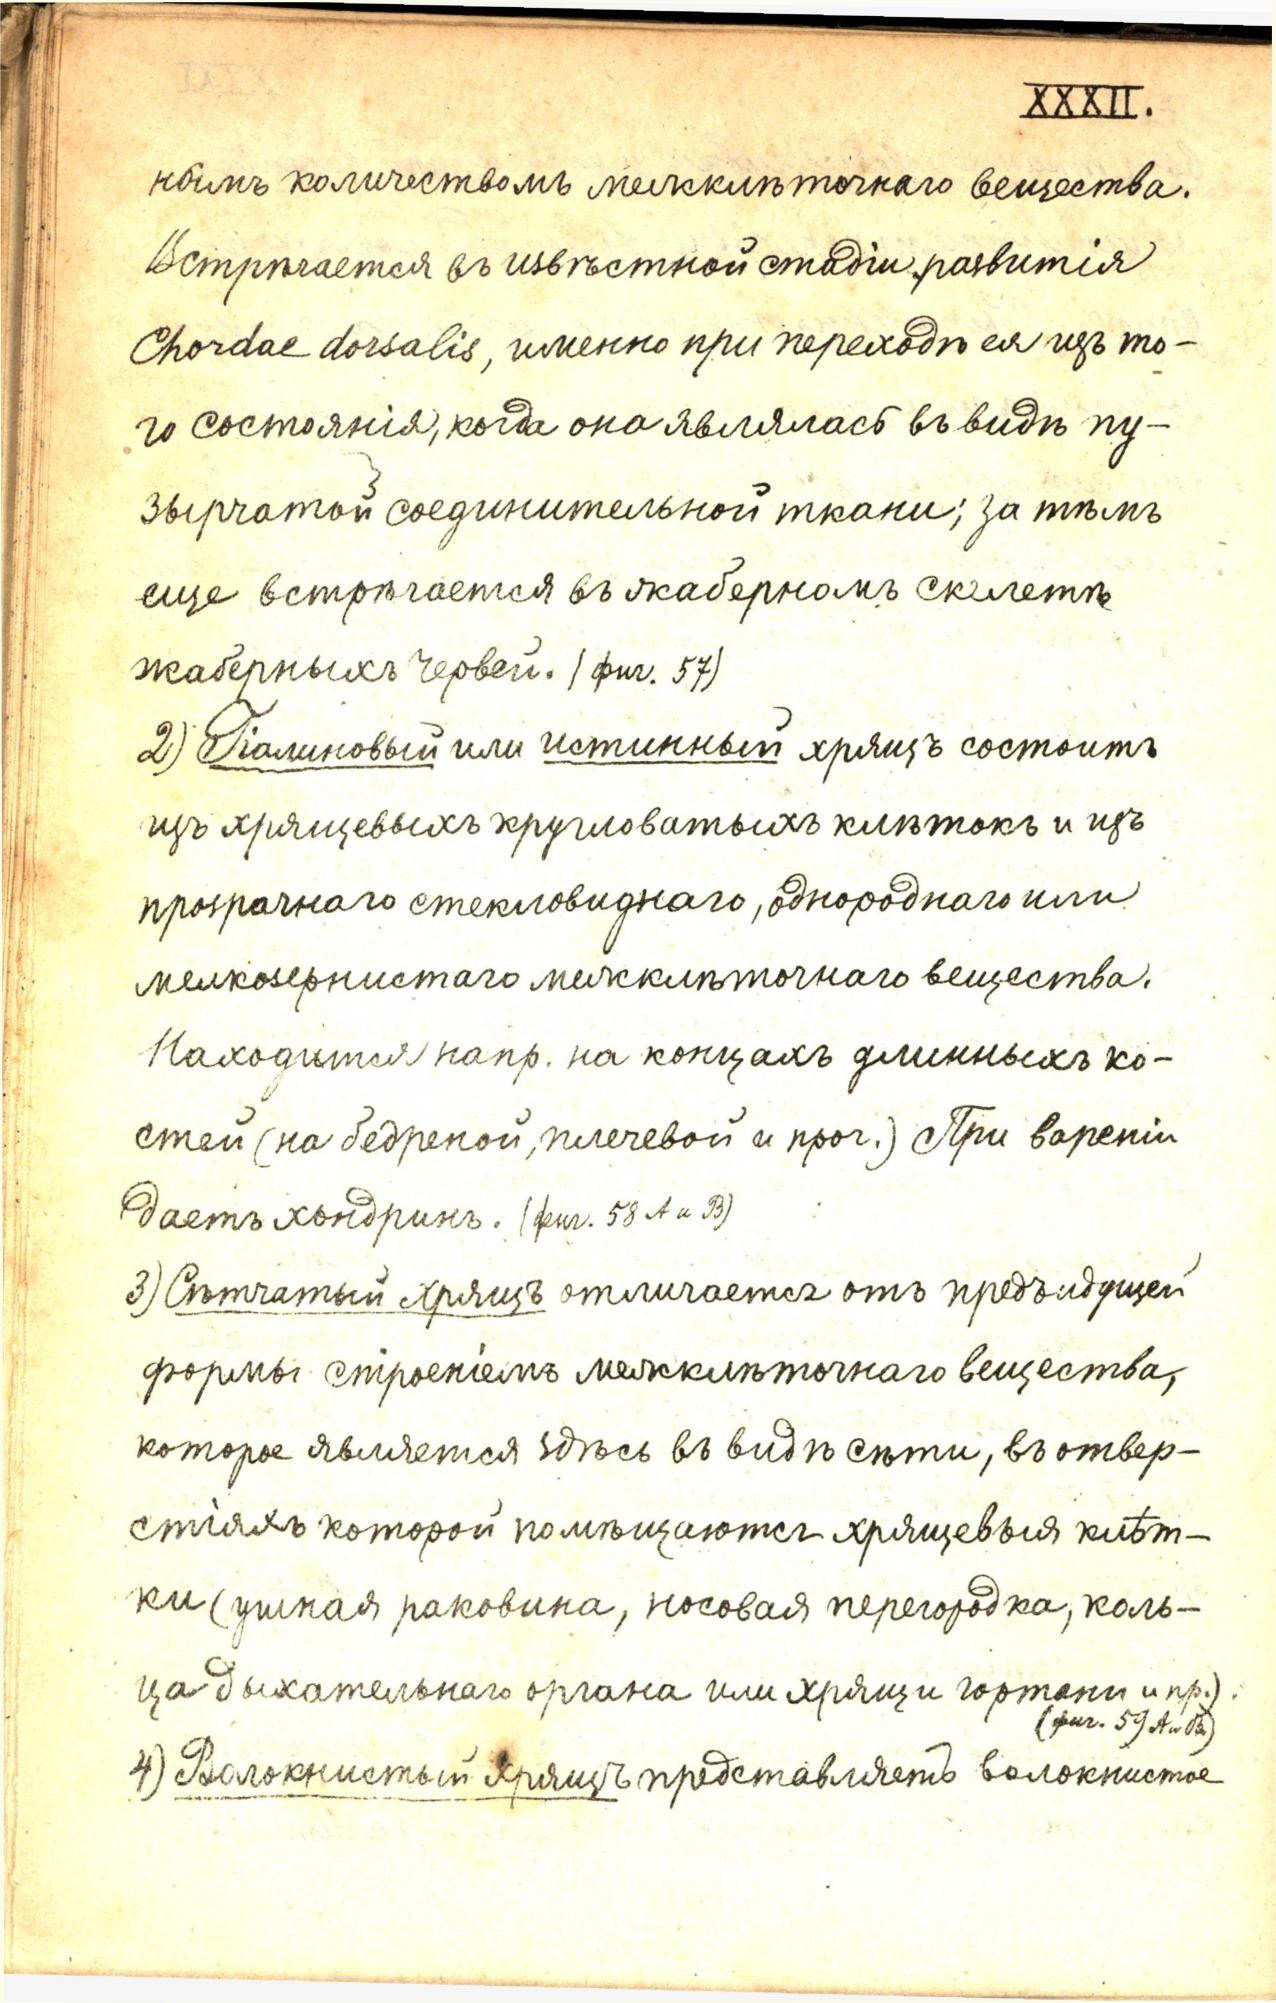 XXXII.
нымъ количествомъ межклѣточнаго вещества.
Встрѣчается въ извѣстной стадіи развитія
Chordae dorsalis, именно при переходѣ ея изъ то-
го состоянія, когда она являлась въ видѣ пу-
зырчатой соединительной ткани; за тѣмъ
еще встрѣчается въ жаберномъ скелетѣ
жаберныхъ червей. (фиг. 57)
2) Гіалиновый или истинный хрящъ состоитъ
изъ хрящевыхъ кругловатыхъ клѣтокъ и изъ
прозрачнаго стекловиднаго, однороднаго или
мелкозернистаго межклѣточнаго вещества.
Находится напр. на концахъ длинныхъ ко-
стей (на бедреной, плечевой и проч.) При вареніи
даетъ хондринъ. (фиг. 58 А и В)
3) Сѣтчатый хрящъ отличается отъ предъидущей
формы строеніемъ межклѣточнаго вещества,
которое является здѣсь въ видѣ сѣти, въ отвер-
стіяхъ которой помѣщаются хрящевыя клѣт-
ки (ушная раковина, носовая перегородка, коль-
ца дыхательнаго органа или хрящи гортани и пр.).
(фиг. 59 А и В)
4) Волокнистый хрящъ представляетъ волокнистое